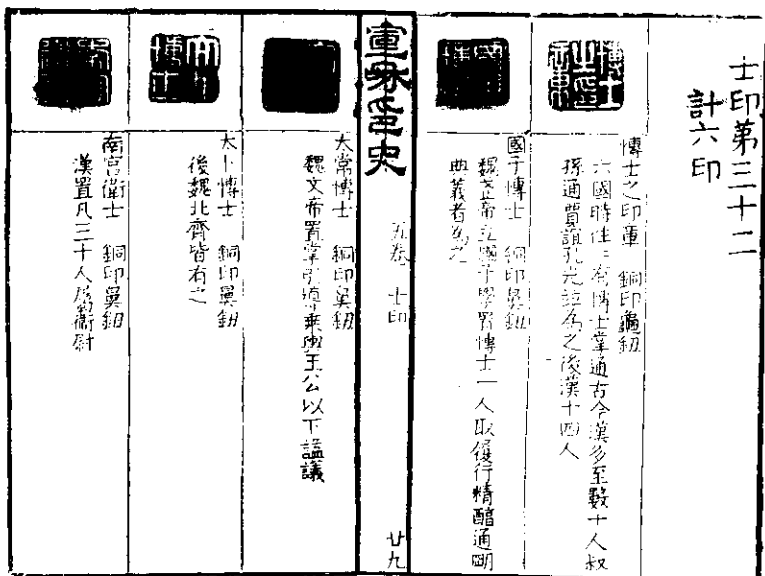 士印第三十二
計六印
博士之印章　銅印龜鈕
六國時往往有博士掌通古今漢多至數十人叔
孫通賈誼孔光並為之後漢十四人
國子博士　銅印鼻鈕
魏帝立國子學置博士一人取履行精醕通明
典義者為之
宣和印史
五卷　士印
廿九
太常博士　銅印鼻鈕
魏文帝置掌引導乘輿王公以下謚議
太卜博士　銅印鼻鈕
後魏北齊皆有之
南宮衛士　銅印鼻鈕
漢置凡三十人屬衛尉